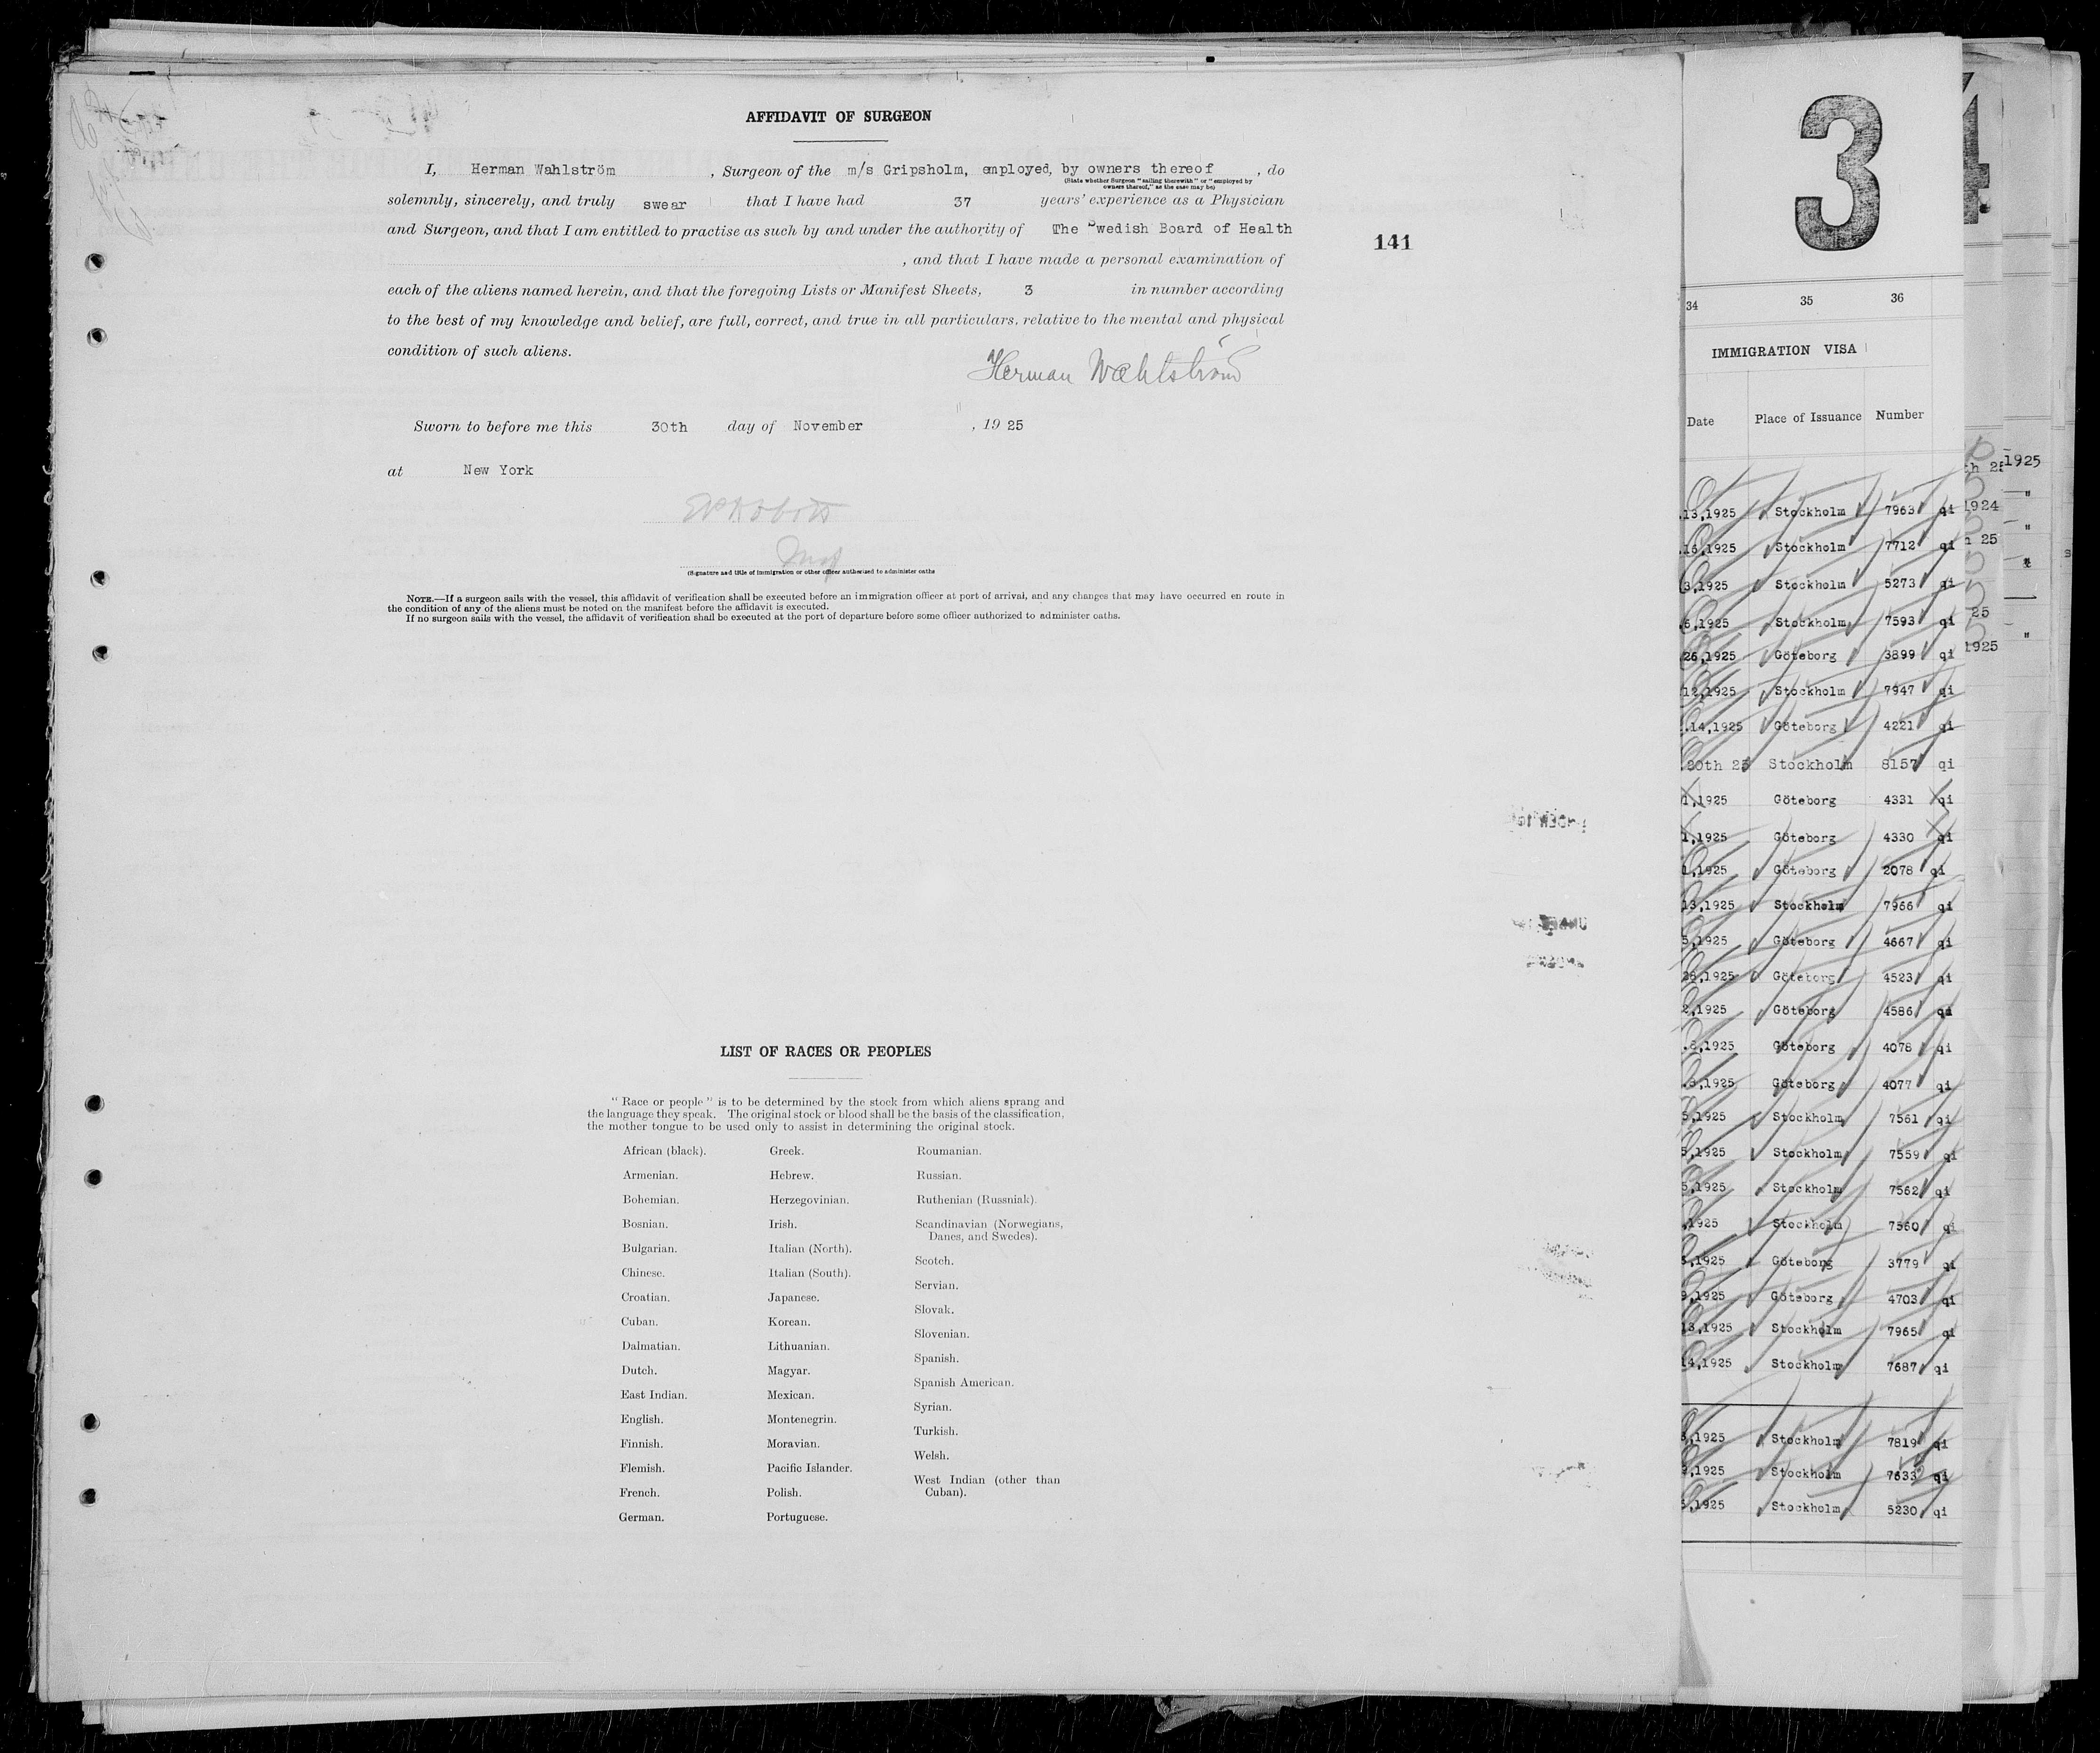 AFFIDAVIT OF SURGEON
I, Herman Wahlström, Surgeon of the m/s Gripsholm, employed, by owners thereof, do
(State whether Surgeon "sailing therewith" or "employed by
owners thereof," as the case may be)
solemnly, sincerely, and truly swear that I have had 37 years' experience as a Physician
and Surgeon, and that I am entitled to practise as such by and under the authority of The Swedish Board of Health
, and that I have made a personal examination of
each of the aliens named herein, and that the foregoing Lists or Manifest Sheets, 3 in number according
to the best of my knowledge and belief, are full, correct, and true in all particulars, relative to the mental and physical
condition of such aliens.
Herman Wahlström
Sworn to before me this 30th day of November, 19 25
at New York
(Signature and title of immigration or other officer authorized to administer oaths
NOTE.—If a surgeon sails with the vessel, this affidavit of verification shall be executed before an immigration officer at port of arrival, and any changes that may have occurred en route in
the condition of any of the aliens must be noted on the manifest before the affidavit is executed.
If no surgeon sails with the vessel, the affidavit of verification shall be executed at the port of departure before some officer authorized to administer oaths.
141
LIST OF RACES OR PEOPLES
"Race or people" is to be determined by the stock from which aliens sprang and
the language they speak. The original stock or blood shall be the basis of the classification,
the mother tongue to be used only to assist in determining the original stock.
African (black).
Armenian.
Bohemian.
Bosnian.
Bulgarian.
Chinese.
Croatian.
Cuban.
Dalmatian.
Dutch.
East Indian.
English.
Finnish.
Flemish.
French.
German.
Greek.
Hebrew.
Herzegovinian.
Irish.
Italian (North).
Italian (South).
Japanese.
Korean.
Lithuanian.
Magyar.
Mexican.
Montenegrin.
Moravian.
Pacific Islander.
Polish.
Portuguese.
Roumanian.
Russian.
Ruthenian (Russniak).
Scandinavian (Norwegians,
Danes, and Swedes).
Scotch.
Servian.
Slovak.
Slovenian.
Spanish.
Spanish American.
Syrian.
Turkish.
Welsh.
West Indian (other than
Cuban).
3
34 35 36
IMMIGRATION VISA
Date Place of Issuance Number
13,1925 Stockholm 7963 qi
16,1925 Stockholm 7712 qi
3,1925 Stockholm 5273 qi
6,1925 Stockholm 7593 qi
26,1925 Göteborg 3899 qi
12,1925 Stockholm 7947 qi
14,1925 Göteborg 4221 qi
20th 25 Stockholm 8157 qi
1,1925 Göteborg 4331 qi
1,1925 Göteborg 4330 qi
1,1925 Göteborg 2078 qi
13,1925 Stockholm 7966 qi
5,1925 Göteborg 4667 qi
28,1925 Göteborg 4523 qi
2,1925 Göteborg 4586 qi
8,1925 Göteborg 4078 qi
8,1925 Göteborg 4077 qi
5,1925 Stockholm 7561 qi
5,1925 Stockholm 7559 qi
5,1925 Stockholm 7562 qi
,1925 Stockholm 7560 qi
,1925 Göteborg 3779 qi
9,1925 Göteborg 4703 qi
13,1925 Stockholm 7965 qi
14,1925 Stockholm 7687 qi
,1925 Stockholm 7819 qi
,1925 Stockholm 7633 qi
,1925 Stockholm 5230 qi
4
1925
1924
25
25
1925